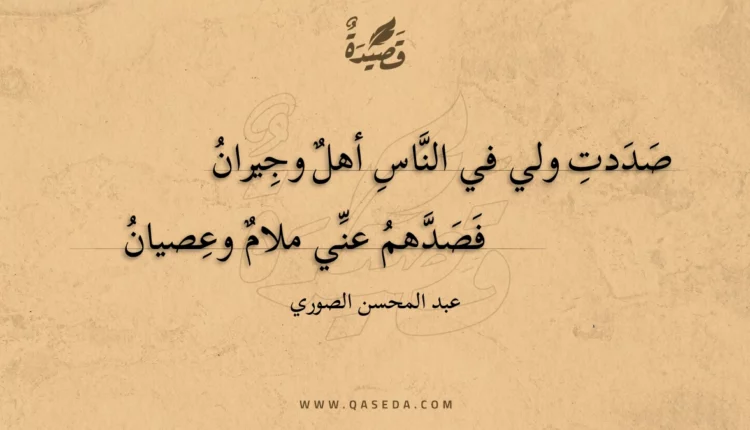 قَصِيدَةٌ
صَدَدتِ ولي في النَّاسِ أهلٌ وجِيرانُ
فَصَدَّهمُ عنِّي ملامٌ وعِصيانُ
عبد المحسن الصوري
WWW.QASEDA.COM